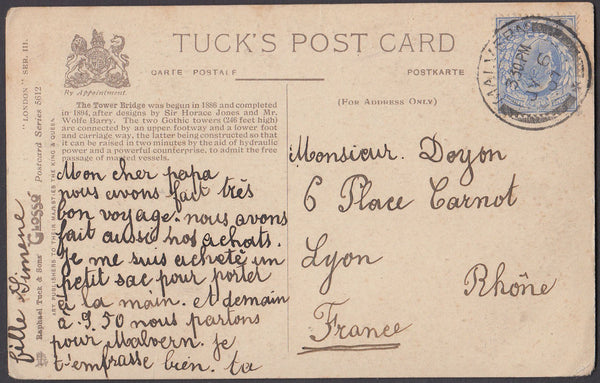 TUCK'S POST CARD
CARTE POSTALE
POSTKARTE
By Appointment
(FOR ADDRESS ONLY)
The Tower Bridge was begun in 1886 and completed
in 1894, after designs by Sir Horace Jones and Mr.
Wolfe Barry. The two Gothic towers (246 feet high)
are connected by an upper footway and a lower foot
and carriage way, the latter being constructed so that
it can be raised in two minutes by the aid of hydraulic
power and a powerful counterpoise, to admit the free
passage of masted vessels.
"LONDON" SER. III.
Glosso Postcard Series 5612
Raphael Tuck & Sons
ART PUBLISHERS TO THEIR MAJESTIES THE KING & QUEEN
Mon cher papa
nous avons fait très
bon voyage. nous avons
fait aussi nos achats.
Je me suis acheté un
petit sac pour porter
à la main. et demain
à 9.50 nous partons
pour Malvern. je
t'embrasse bien. ta
fille Simene
Monsieur Doyon
6 Place Carnot
Lyon
Rhône
France
5.30 PM